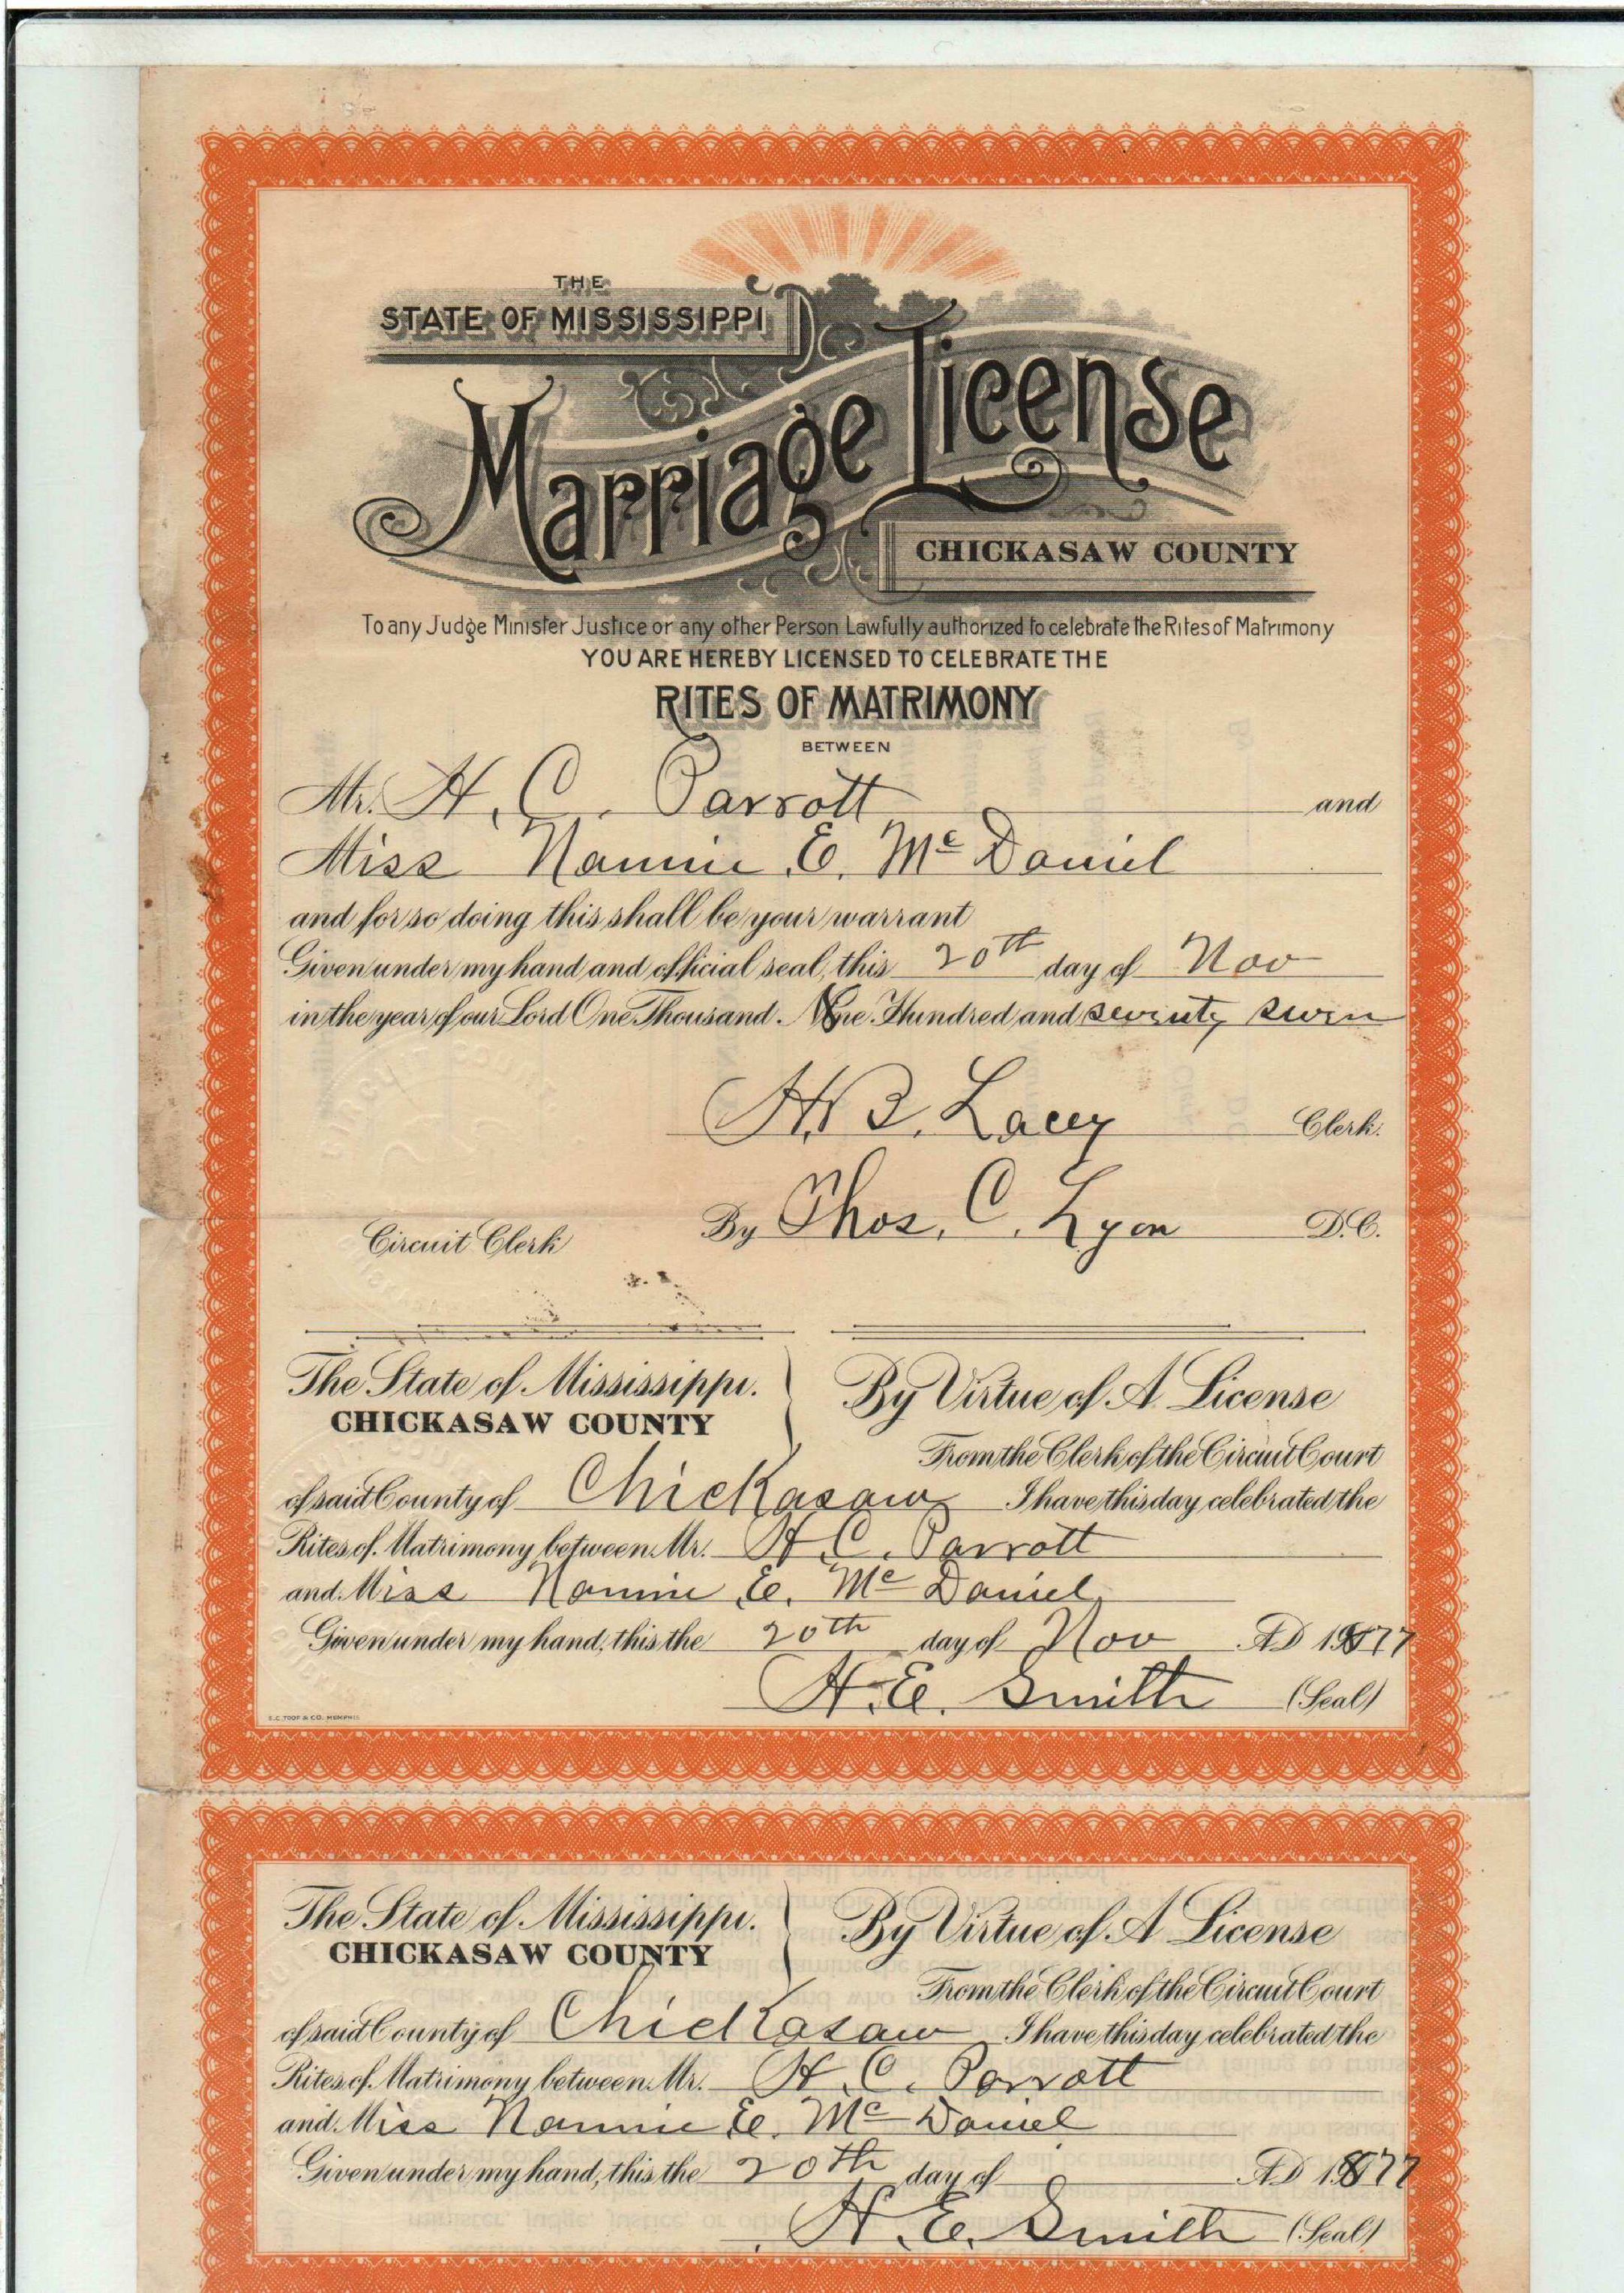 THE
STATE OF MISSISSIPPI
Marriage License
CHICKASAW COUNTY
To any Judge Minister Justice or any other Person Lawfully authorized to celebrate the Rites of Matrimony
YOU ARE HEREBY LICENSED TO CELEBRATE THE
RITES OF MATRIMONY
BETWEEN
Mr. H. C. Parrott and
Miss Nannie E. Mc Daniel
and for so doing this shall be your warrant
Given under my hand and official seal, this 20th day of Nov
in the year of our Lord One Thousand. Hundred and seventy seven
H. B. Lacey Clerk.
Circuit Clerk By Thos. C. Lyon D.C.
The State of Mississippi. By Virtue of A License
CHICKASAW COUNTY
From the Clerk of the Circuit Court
of said County of Chickasaw I have this day celebrated the
Rites of Matrimony between Mr. H. C. Parrott
and Miss Nannie E. Mc Daniel
Given under my hand, this the 20th day of Nov AD 1877
H. E. Smith (Seal)
S.C. TOOF & CO. MEMPHIS
The State of Mississippi. By Virtue of A License
CHICKASAW COUNTY
From the Clerk of the Circuit Court
of said County of Chickasaw I have this day celebrated the
Rites of Matrimony between Mr. H. C. Parrott
and Miss Nannie E. Mc Daniel
Given under my hand, this the 20th day of AD 1877
H. E. Smith (Seal)